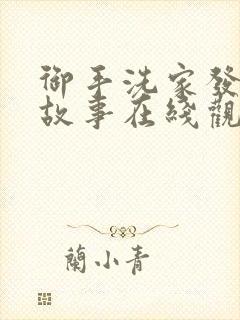 御手洗家發
故事在綫觀
蘭小青